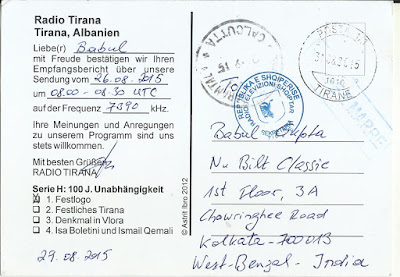 Radio Tirana
Tirana, Albanien
Liebe(r) Babul
mit Freude bestätigen wir Ihren
Empfangsbericht über unsere
Sendung vom 26.08.2015
um 08.00 - 08.30 UTC
auf der Frequenz 7390 kHz.
Ihre Meinungen und Anregungen
zu unserem Programm sind uns
stets willkommen.
Mit besten Grüßen
RADIO TIRANA
Serie H: 100 J. Unabhängigkeit
1. Festlogo
2. Festliches Tirana
3. Denkmal in Vlora
4. Isa Boletini und Ismail Qemali
29.08.2015
© Astrit Ibro 2012
CALCUTTA
REPUBLIKA E SHQIPERISE
RADIOTELEVIZIONI SHQIPTAR
TIRANE
Babul Gupta
Nu Bilt Classic
1st Floor, 3A
Chowringhee Road
Kolkata-700013
West-Bengal - India